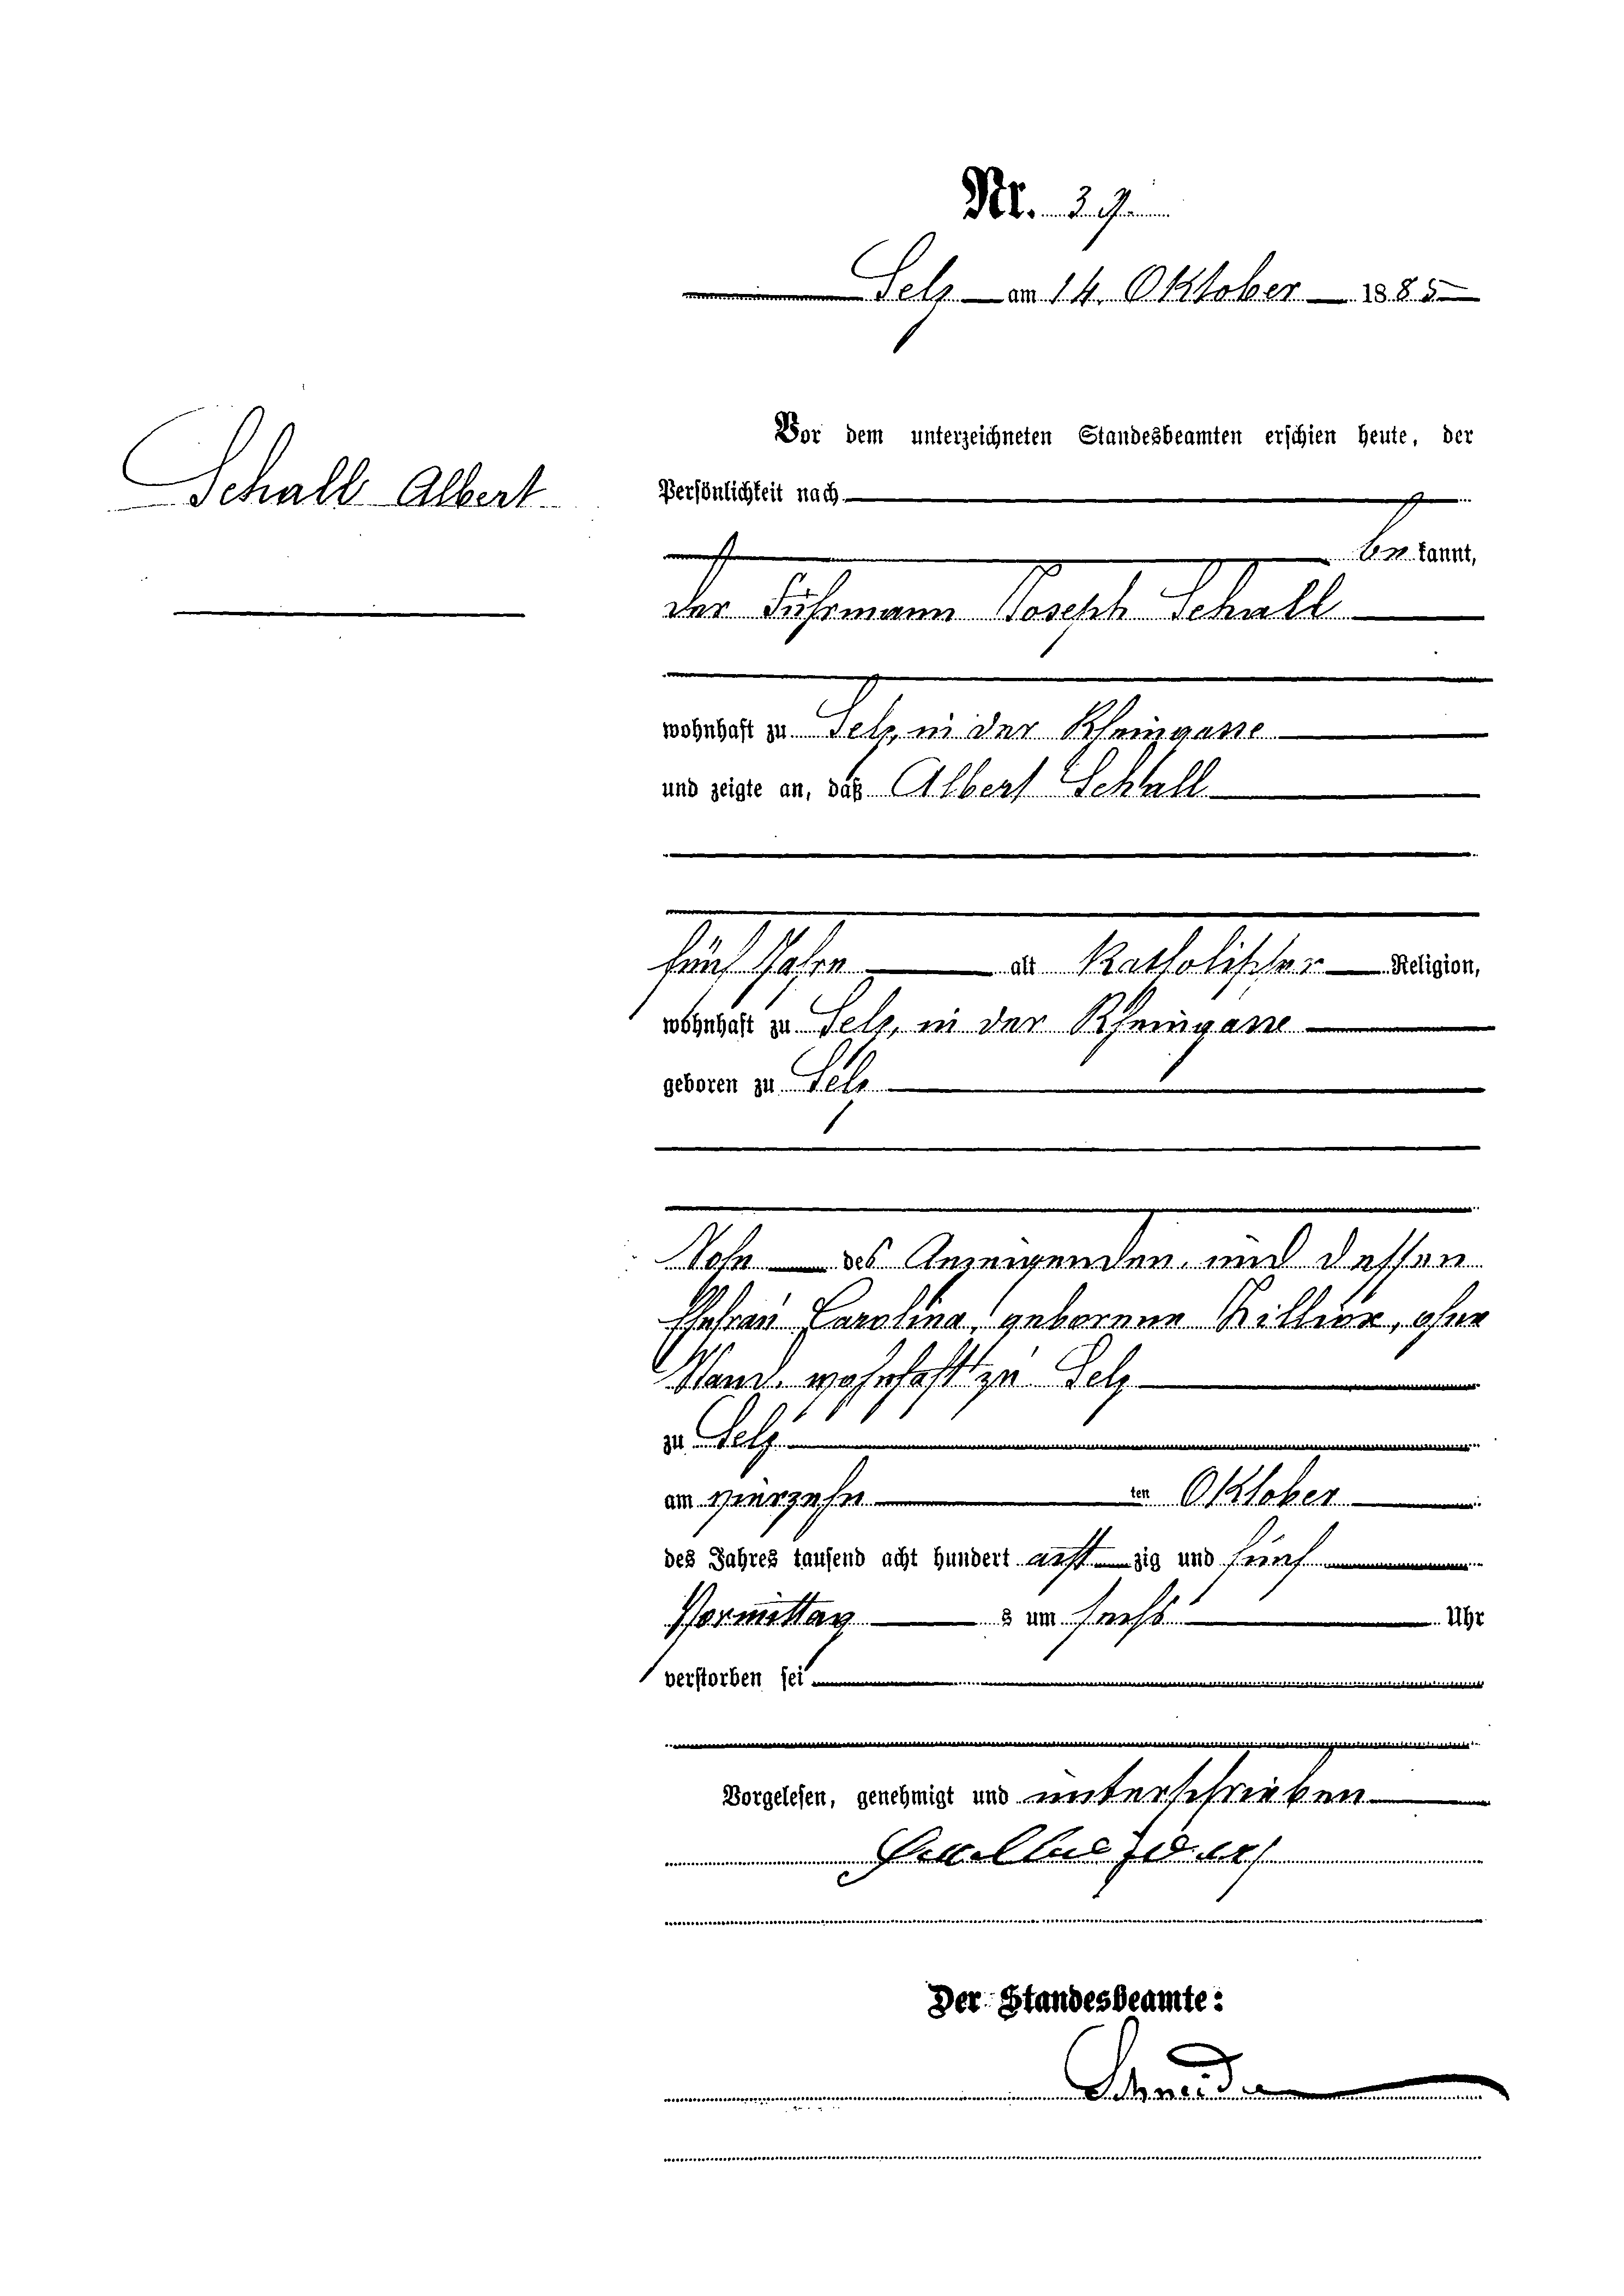 Nr. 39.
Selz am 14. Oktober 1885
Vor dem unterzeichneten Standesbeamten erschien heute, der
Schall Albert
Persönlichkeit nach
bekannt,
der Fuhrmann Joseph Schall
wohnhaft zu Selz, in der Rheingasse
und zeigte an, daß Albert Schall
fünf Jahre alt katholischer Religion,
wohnhaft zu Selz, in der Rheingasse
geboren zu Selz
Sohn des Anzeigenden und dessen
Ehefrau Carolina, geborene Killian, ohne
Stand, wohnhaft zu Selz
zu Selz
am vierzehn ten Oktober
des Jahres tausend acht hundert achtzig und fünf
Vormittag s um sechs Uhr
verstorben sei
Vorgelesen, genehmigt und unterschrieben
Der Standesbeamte:
Schneider